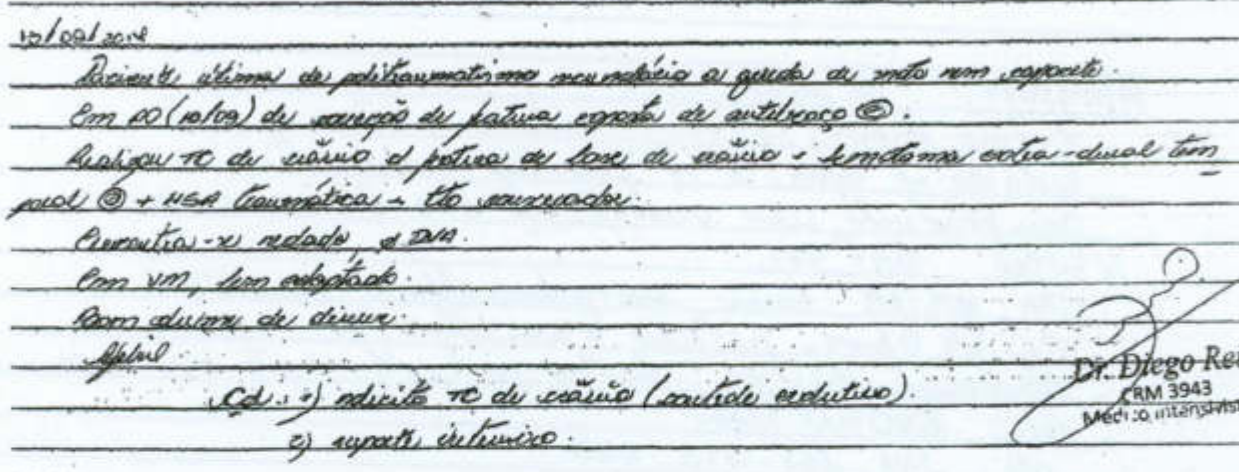 Paciente vítima de politraumatismo secundário a queda de moto sem capacete.
Em PO (10/09) de correção de fratura exposta de antebraço Ⓔ.
Realizou TC de crânio c/ fratura de base de crânio + hematoma extra-dural tem
poral Ⓔ + HSA traumática - tto conservador.
Encontra-se sedado, s/ DVA.
Em VM, bem adaptado.
Bom volume de diurese.
Afebril
Cd.: 1) solicito TC de crânio (controle evolutivo).
2) suporte intensivo.
Dr. Diego
CRM 3943
Médico intensivista